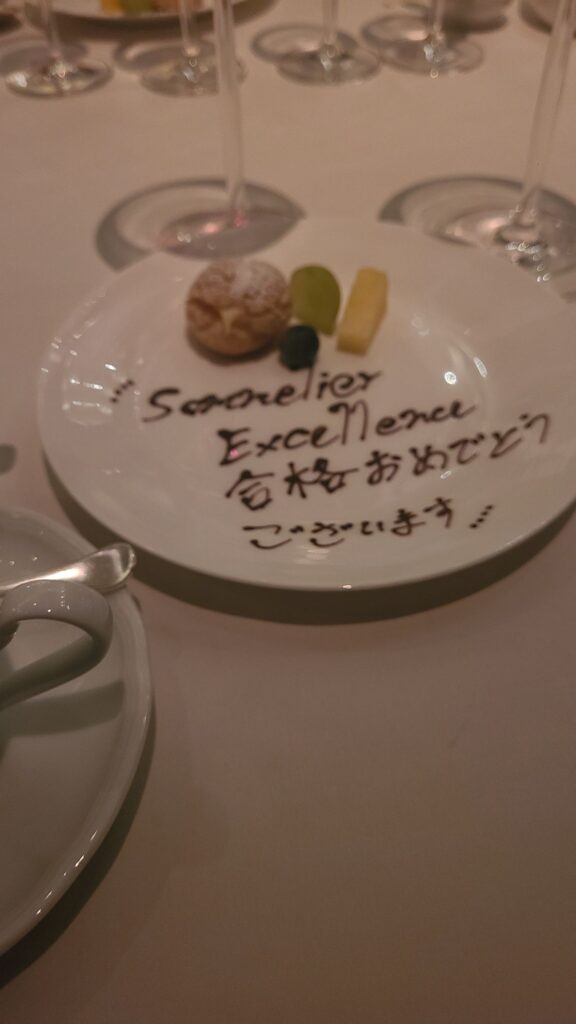 Sommelier
Excellence
合格おめでとう
ございます